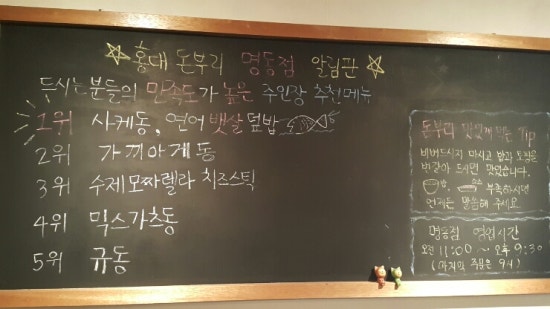 홍대 돈부리 명동점 알림판
드시는분들의 만족도가 높은 주인장 추천메뉴
1위 사케동, 연어 뱃살 덮밥
2위 가끼아게동
3위 수제 모짜렐라 치즈스틱
4위 믹스가츠동
5위 규동
돈부리 맛있게 먹는 Tip
비버드시지 마시고 밥과 토핑을
번갈아 드시면 맛있습니다.
부족하시면
언제든 말씀해 주세요
명동점 영업시간
오전 11:00 ~ 오후 9:30
(마지막 주문은 9시)